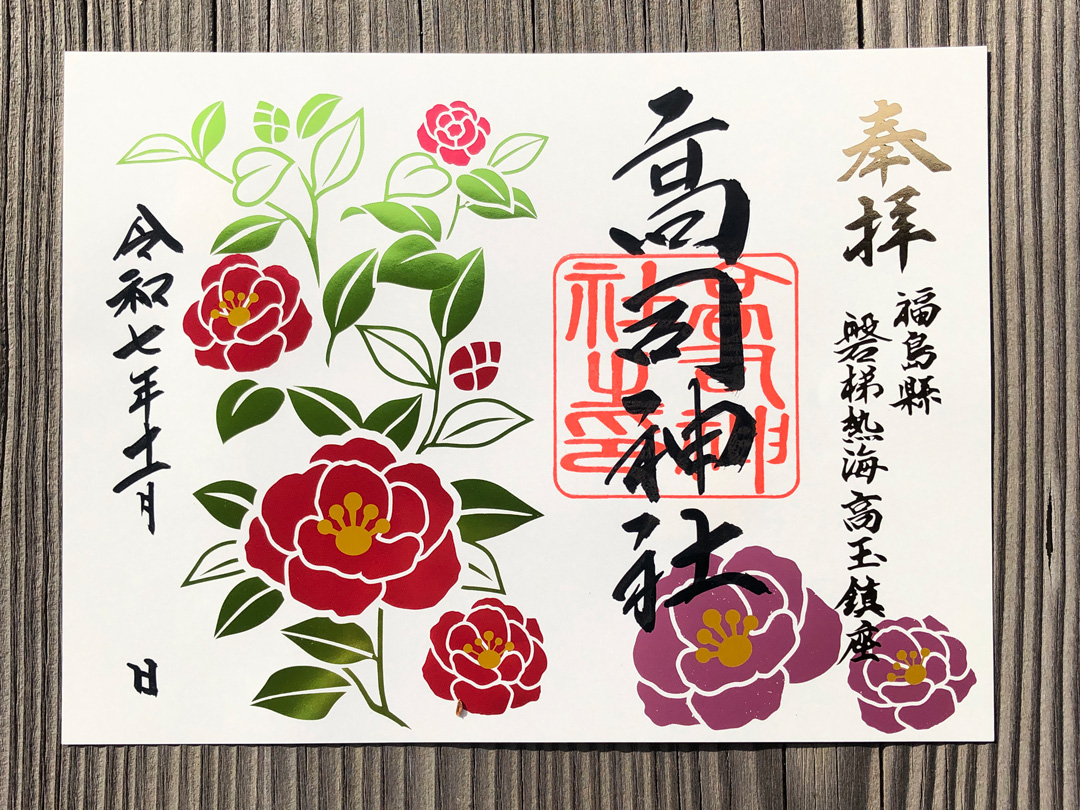 奉拝
福島縣
磐梯熱海高玉鎮座
高司神社
高司神
社之印
令和七年十一月
日